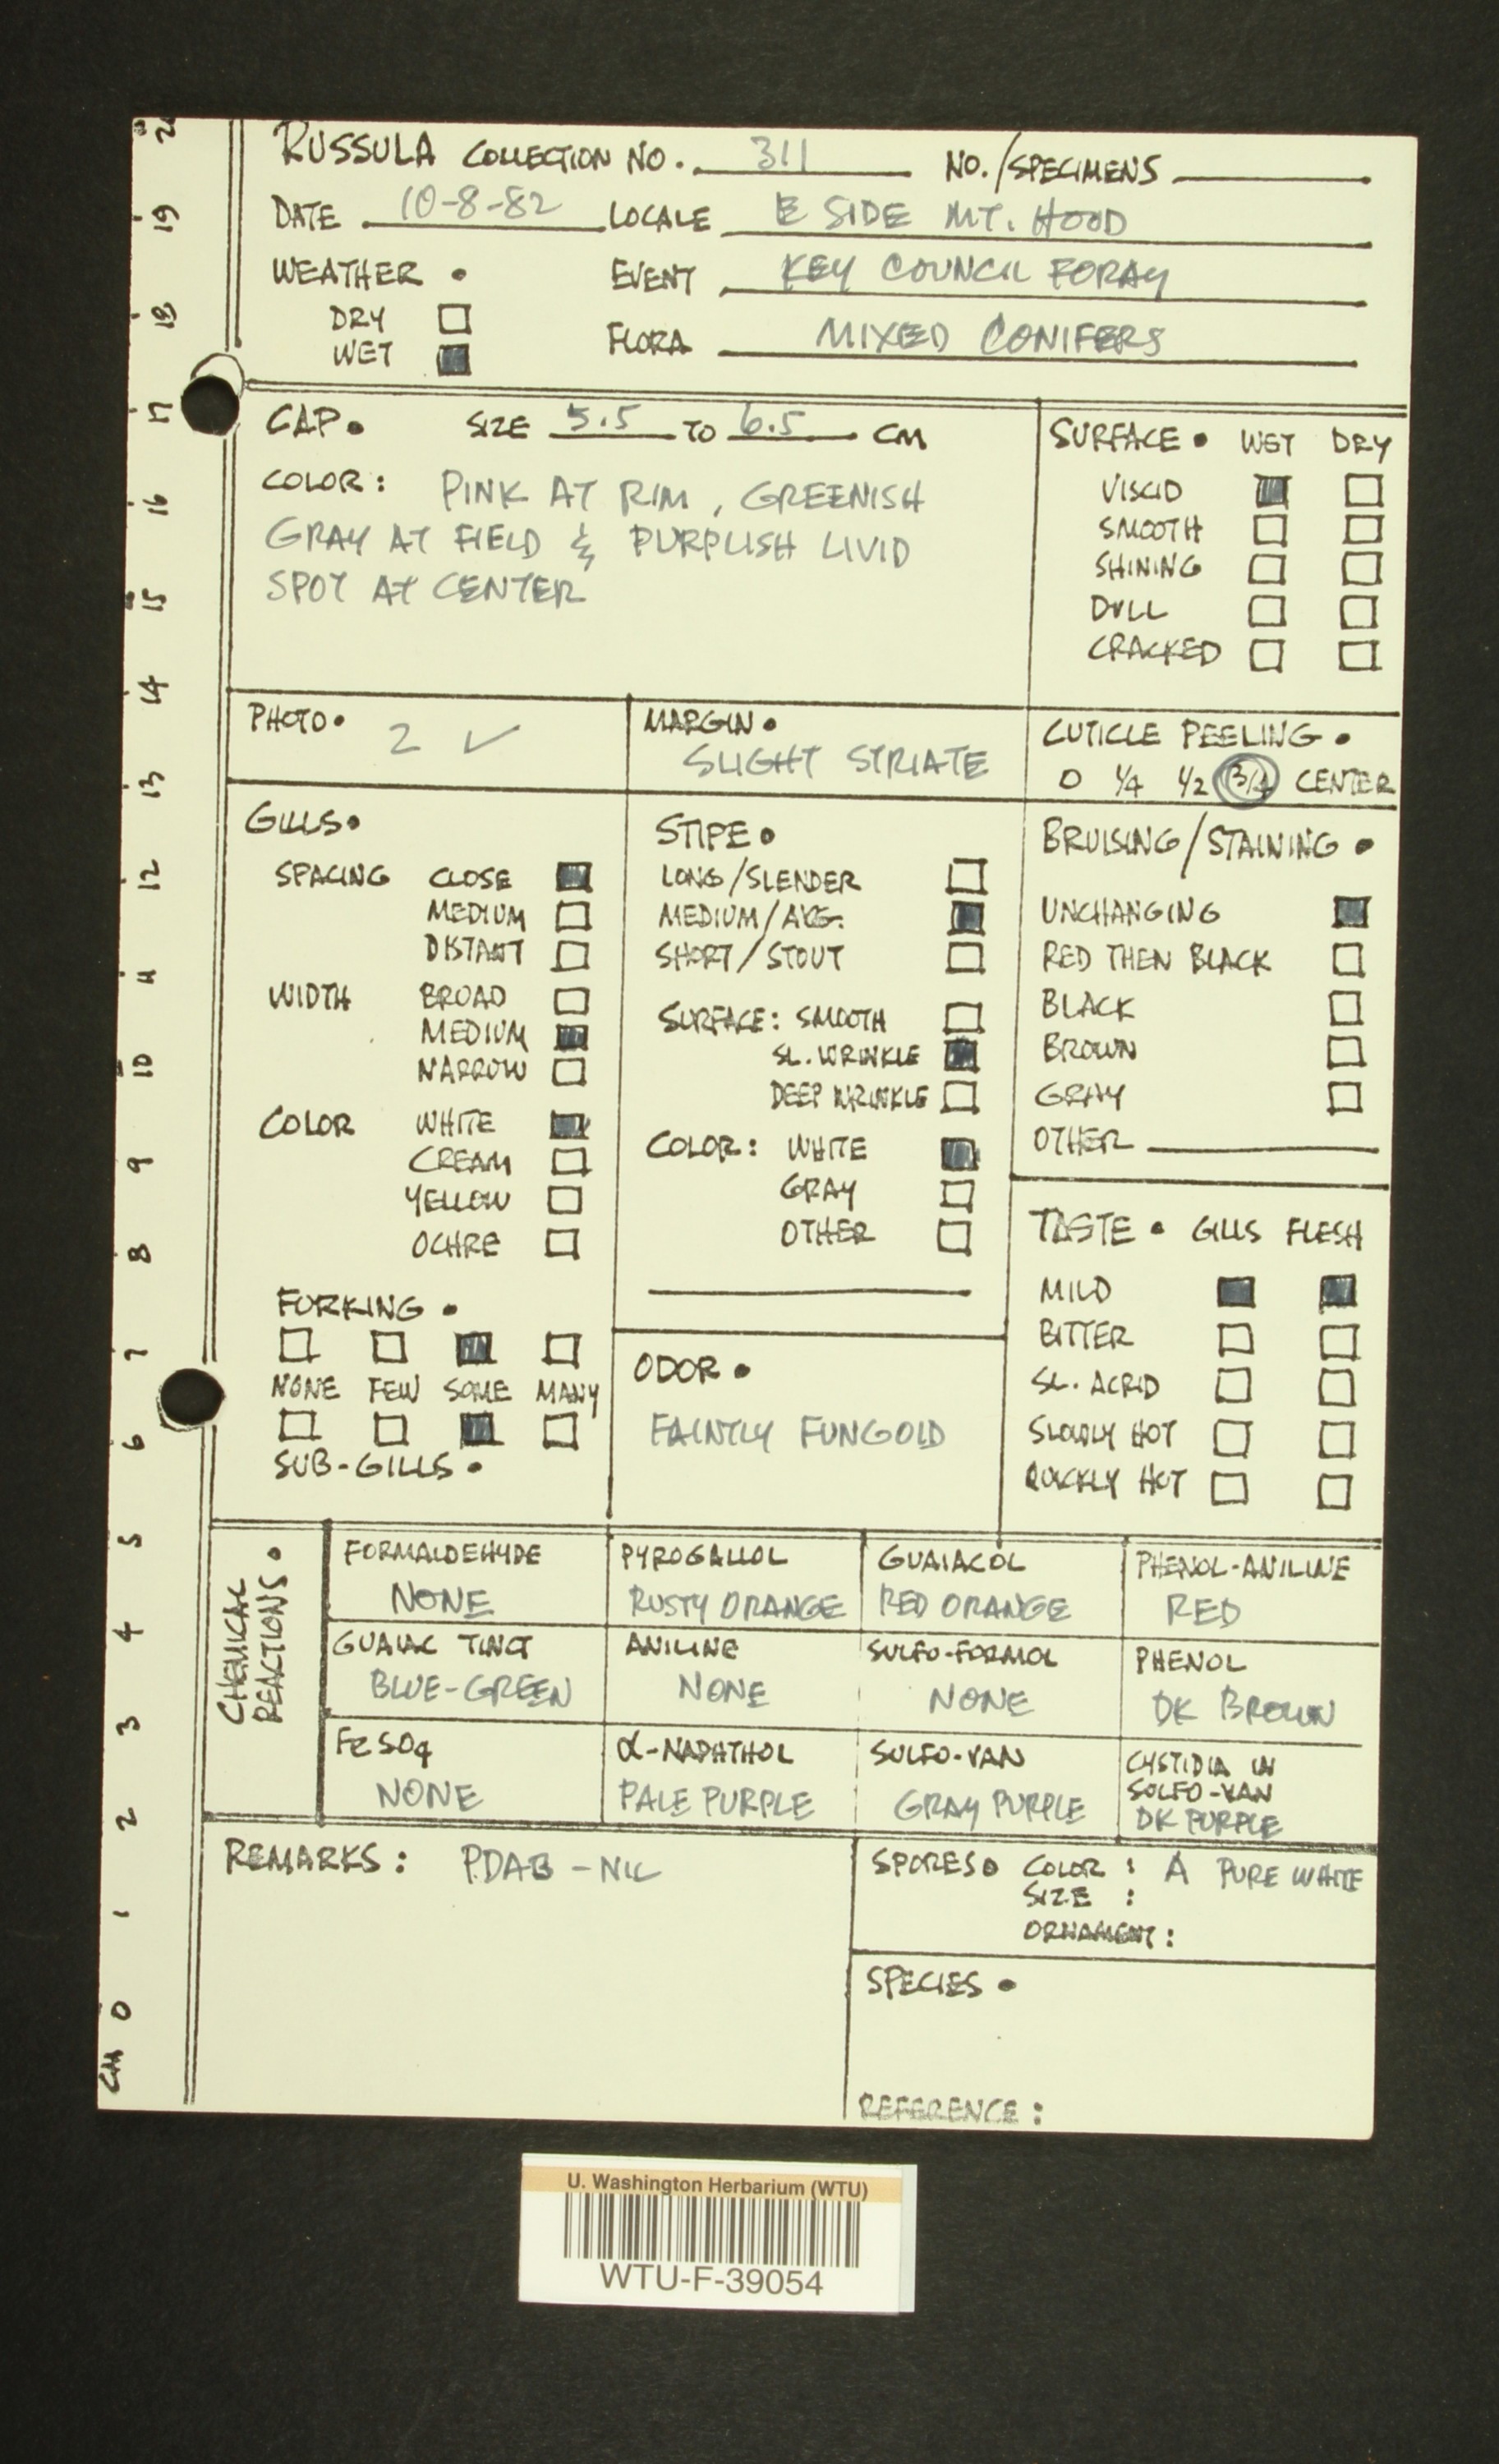 RUSSULA COLLECTION NO. 311 NO./SPECIMENS
DATE 10-8-82 LOCALE E SIDE MT. HOOD
WEATHER • EVENT KEY COUNCIL FORAY
DRY
WET FLORA MIXED CONIFERS
CAP • SIZE 5.5 TO 6.5 CM
COLOR: PINK AT RIM, GREENISH
GRAY AT FIELD & PURPLISH LIVID
SPOT AT CENTER
SURFACE • WET DRY
VISCID
SMOOTH
SHINING
DULL
CRACKED
PHOTO • 2 ✓
MARGIN •
SLIGHT STRIATE
CUTICLE PEELING •
0 1/4 1/2 3/4 CENTER
GILLS •
SPACING CLOSE
MEDIUM
DISTANT
WIDTH BROAD
MEDIUM
NARROW
COLOR WHITE
CREAM
YELLOW
OCHRE
FORKING •
NONE FEW SOME MANY
SUB-GILLS •
STIPE •
LONG/SLENDER
MEDIUM/AVG.
SHORT/STOUT
SURFACE: SMOOTH
SL. WRINKLE
DEEP WRINKLE
COLOR: WHITE
GRAY
OTHER
ODOR •
FAINTLY FUNGOID
BRUISING/STAINING •
UNCHANGING
RED THEN BLACK
BLACK
BROWN
GRAY
OTHER
TASTE • GILLS FLESH
MILD
BITTER
SL. ACRID
SLOWLY HOT
QUICKLY HOT
CHEMICAL
REACTIONS •
FORMALDEHYDE
NONE
PYROGALLOL
RUSTY ORANGE
GUAIACOL
RED ORANGE
PHENOL-ANILINE
RED
GUAIAC TINCT
BLUE-GREEN
ANILINE
NONE
SULFO-FORMOL
NONE
PHENOL
DK BROWN
FeSO4
NONE
α-NAPHTHOL
PALE PURPLE
SULFO-VAN
GRAY PURPLE
CYSTIDIA IN
SULFO-VAN
DK PURPLE
REMARKS: PDAB - NIL
SPORES • COLOR: A PURE WHITE
SIZE :
ORNAMENT:
SPECIES •
REFERENCE:
20
19
18
17
16
15
14
13
12
11
10
9
8
7
6
5
4
3
2
1
0
CM
U. Washington Herbarium (WTU)
WTU-F-39054